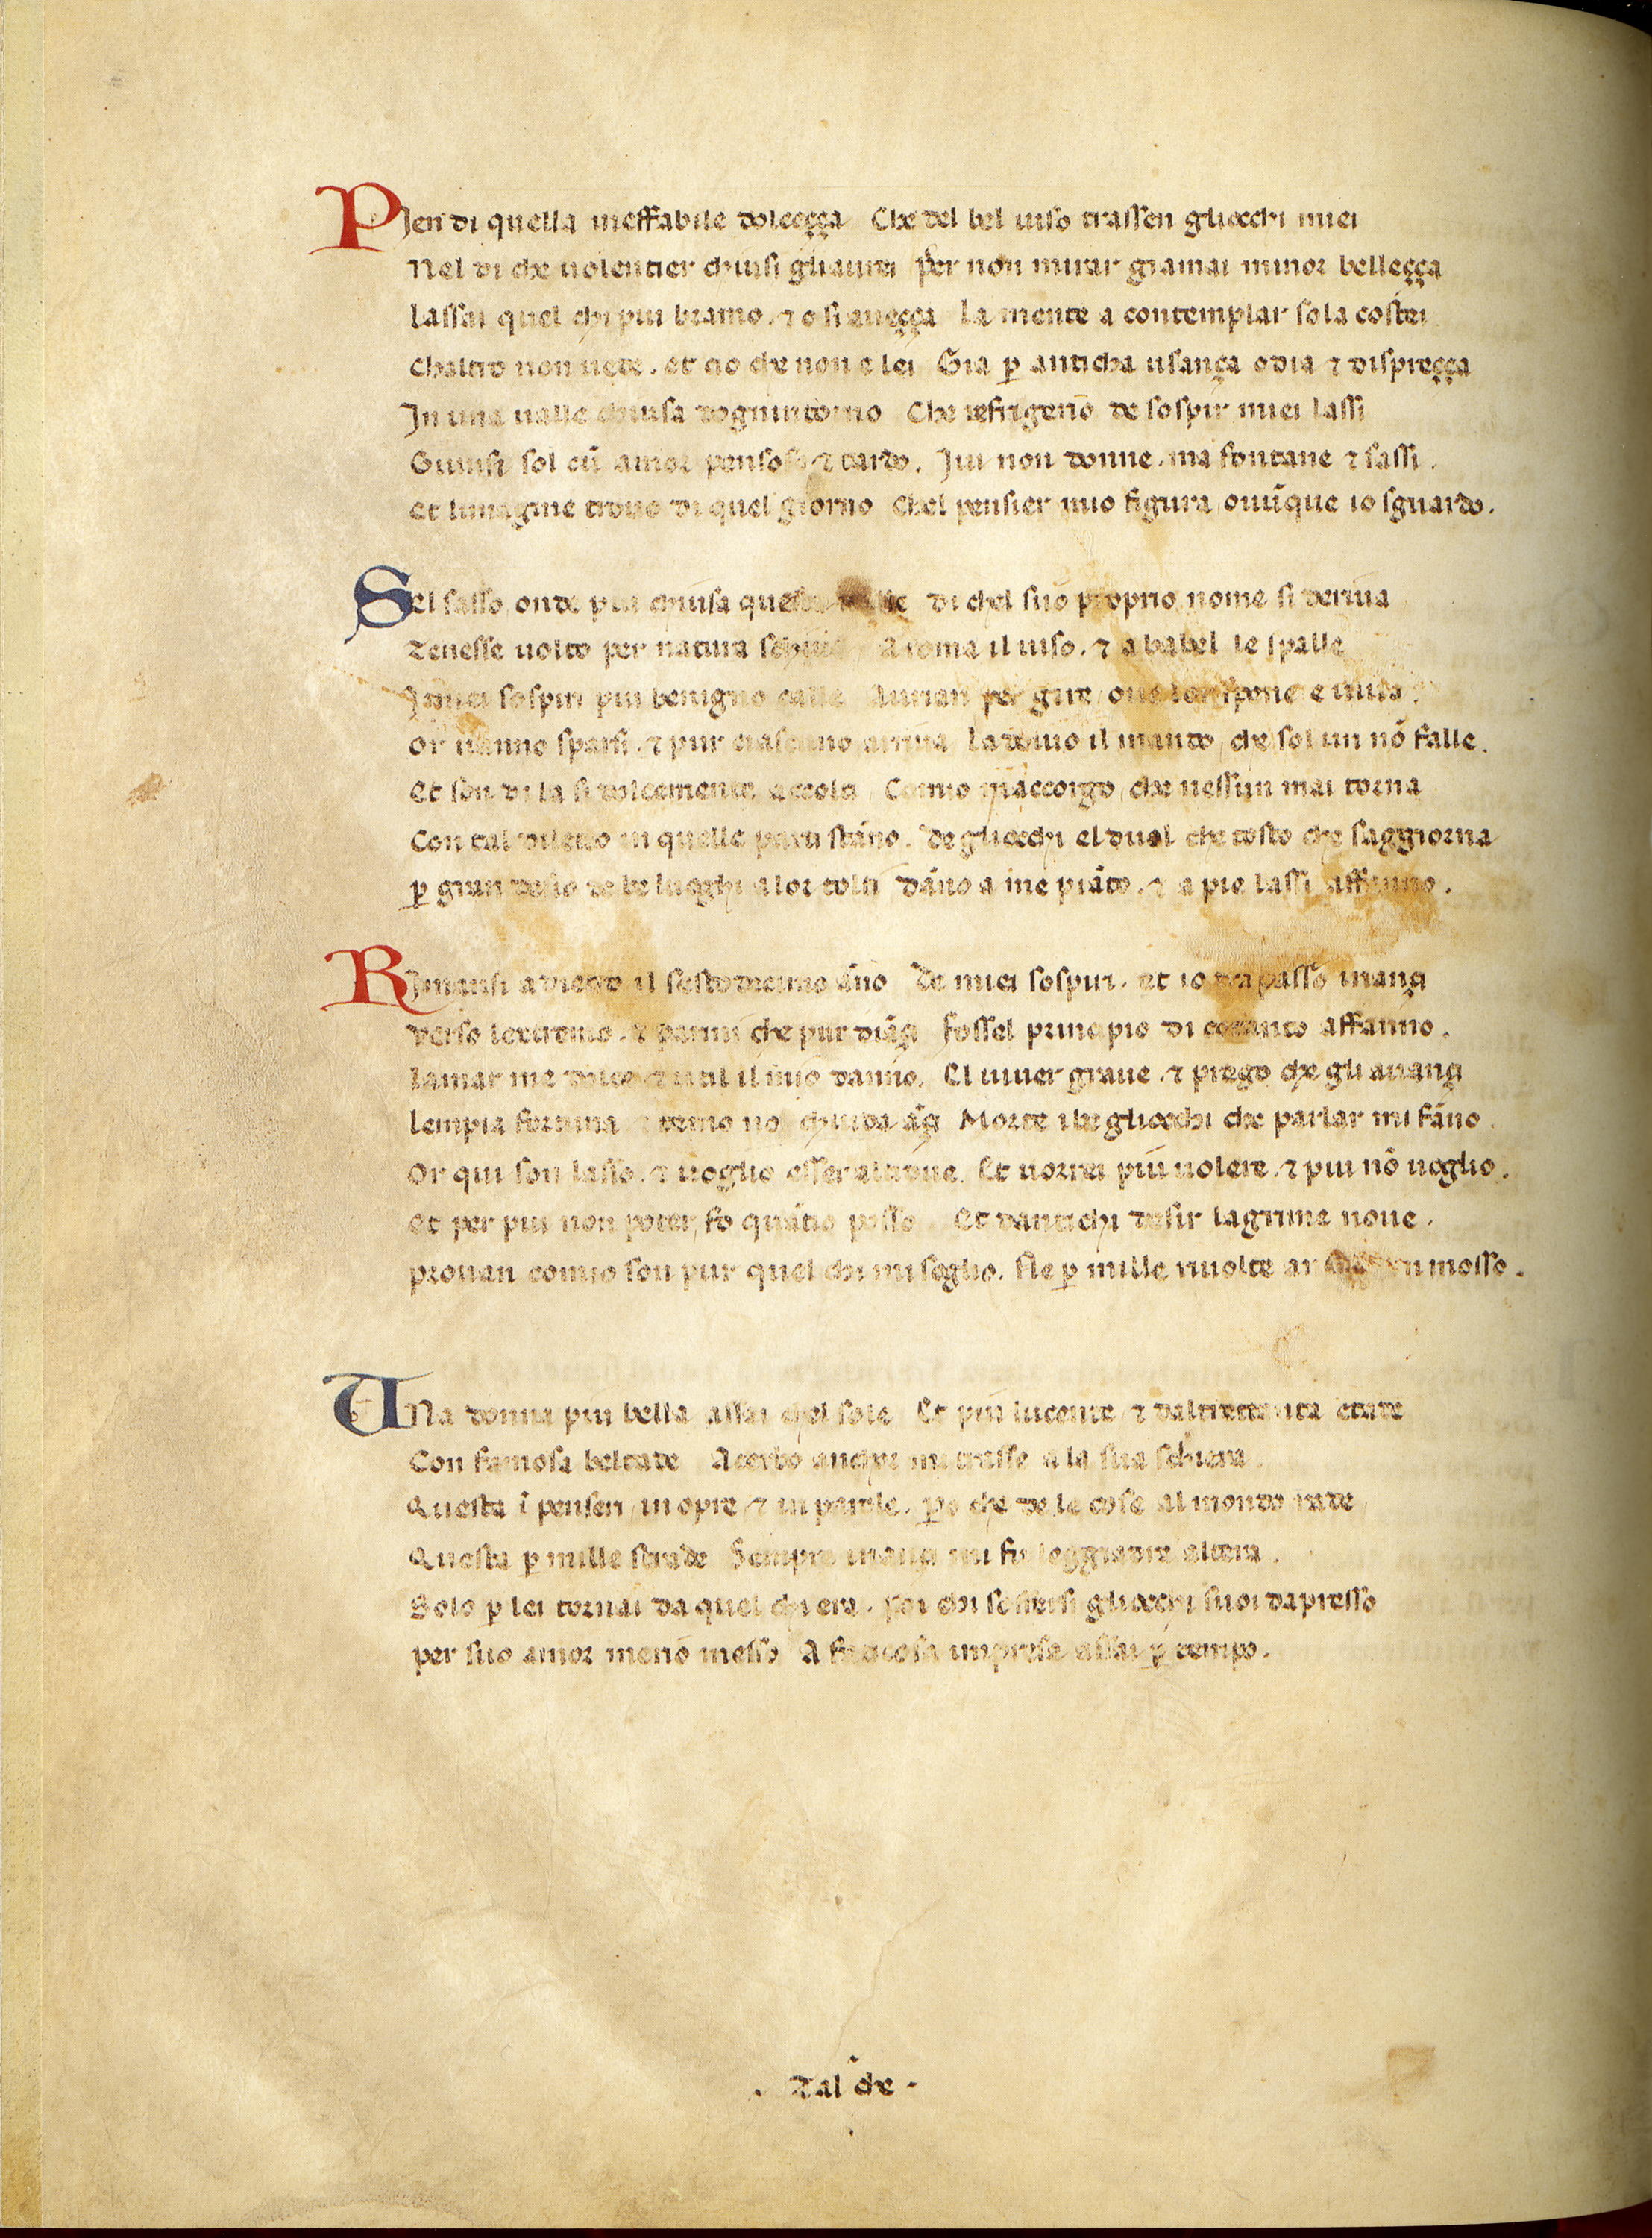 PJen di quella ineffabile dolceçça Che del bel uiso trassen gliocchi miei
Nel di che uolentier chiusi gliaurei per non mirar giamai minor belleçça
lassai quel chi piu bramo. ⁊ o si aueçça la mente a contemplar sola costei
Chaltro non uede. et cio che non e lei Gia ꝑ anticha usança odia ⁊ dispreçça
Jn una ualle chiusa dognintorno Che refrigerio de sospir miei lassi
Giunsi sol cū amor pensoso ⁊ tardo. Jui non donne. ma fontane ⁊ sassi.
et limagine trouo di quel giorno Chel pensier mio figura ouūque io sguardo.
Sel sasso onde piu chiusa questa ualle di chel suo proprio nome si deriua
Tenesse uolto per natura schiua A roma il uiso. ⁊ a babel le spalle
J miei sospiri piu benigno calle Aurian per gire oue lor spene e uiua.
Or uanno sparsi. ⁊ pur ciascuno arriua la douio il mando, che sol un nō falle.
Et son di la si dolcemente accolti Comio maccorgo, che nessun mai torna
Con tal diletto in quelle parti stāno. De gliocchi el duol che tosto che saggiorna
ꝑ gran desio de be luoghi a lor tolti dāno a me piāto. ⁊ a pie lassi affanno.
RJmansi a dietro il sestodecimo āno De miei sospiri. et io trapasso inançi
verso lextremo. ⁊ parmi che pur diāçi fossel principio di cotanto affanno.
lamar me dolce ⁊ util il mio danno. El uiuer graue. ⁊ prego che gli auançi
lempia fortuna ⁊ temo no chiuda āçi Morte i be gliocchi che parlar mi fāno.
Or qui son lasso. ⁊ uoglio esser altroue. Et uorrei piu uolere. ⁊ piu nō uoglio.
Et per piu non poter, fo quāto posso Et dantichi desir lagrime noue.
prouan comio son pur quel chi mi soglio. Ne ꝑ mille riuolte an mosso.
UNa donna piu bella assai chel sole Et piu lucente ⁊ daltrettanta etate
Con famosa beltate Acerbo anchor mi trasse a la sua schiera.
Questa ī penseri, in opre ⁊ in parole. ꝑo che de le cose al mondo rade
Questa ꝑ mille strade Sempre inançi mi fu leggiadra altera.
Solo ꝑ lei tornai da quel chi era. poi chi soffersi gliocchi suoi dapresso
per suo amor merio messo A faticosa impresa assai ꝑ tempo.
. Tal che .